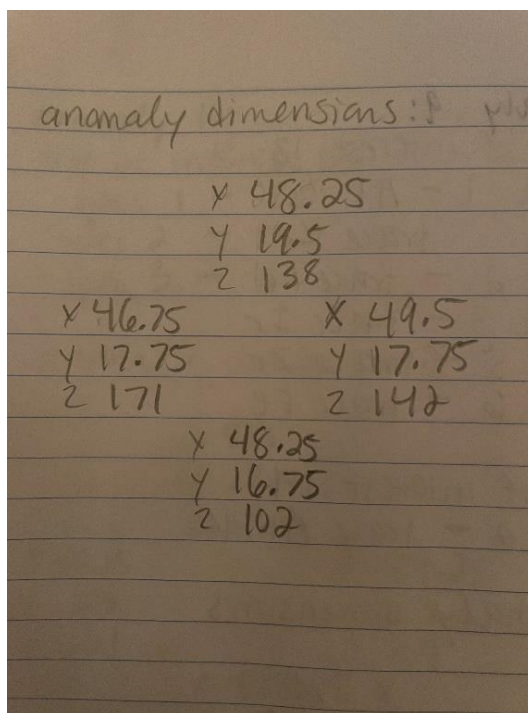 anomaly dimensions:
X 48.25
Y 19.5
Z 138
X 46.75 X 49.5
Y 17.75 Y 17.75
Z 171 Z 142
X 48.25
Y 16.75
Z 102